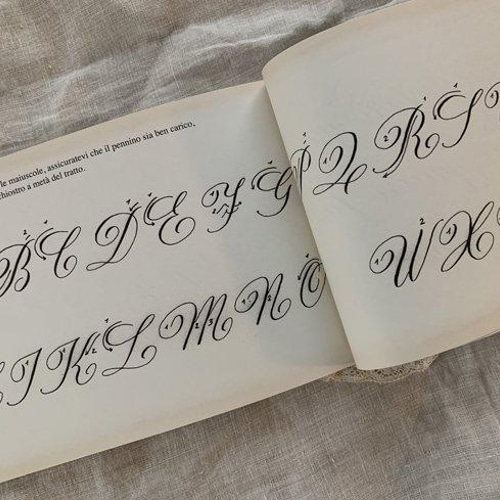 le maiuscole, assicuratevi che il pennino sia ben carico,
chiostro a metà del tratto.
B C D E F G
I K L M N O
P Q R S
W X